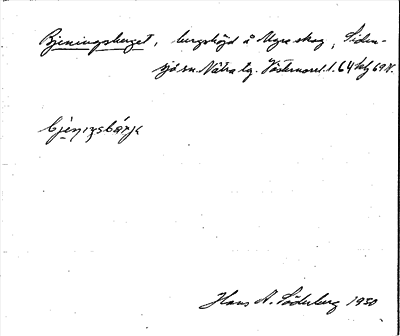 Bjeningsberget, bergshöjd å Myre skog, Siden-
sjö sn. Nätra tg. Västernorrl. l. 64 hly 69 N.
bjèniŋsbárjk
Hans A. Söderberg 1930